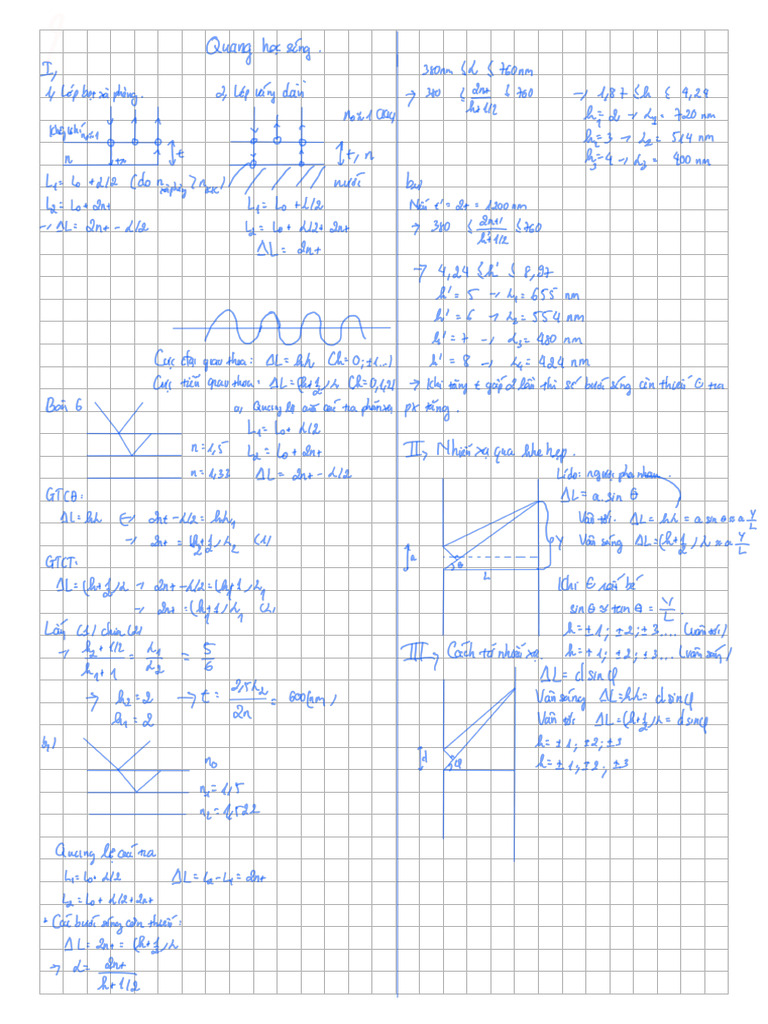 Quang học sóng.
I,
1, Lớp bọt xà phòng.
2, Lớp váng dầu
Không khí n₀≈1
n
t
n₀≈1 (kk)
t, n
nước
L₁ = L₀ + λ/2 (do n xà phòng > n kk)
L₂ = L₀ + 2nt
→ ΔL = 2nt - λ/2
L₁ = L₀ + λ/2
L₂ = L₀ + λ/2 + 2nt
ΔL = 2nt
Cực đại giao thoa: ΔL = kλ (k=0; ±1...)
Cực tiểu giao thoa: ΔL = (k+1/2)λ (k=0,1,2)
Bài 6
a, Quang lộ của các tia phản xạ
L₁ = L₀ + λ/2
n = 1,5
L₂ = L₀ + 2nt
n = 1,33
ΔL = 2nt - λ/2
GTCĐ:
ΔL = kλ ⇔ 2nt - λ/2 = kλ₁
→ 2nt = (k₂+1/2)λ₂ (1)
GTCT:
ΔL = (k+1/2)λ → 2nt - λ/2 = (k+1/2)λ₁
→ 2nt = (k₁+1)λ₁ (2)
Lấy (1) chia (2)
→ (k₂+1/2)/(k₁+1) = λ₁/λ₂ = 5/6
→ k₂ = 2
k₁ = 2
→ t = 2,5λ₂/2n = 600 (nm)
b,
n₀
n = 1,5
n = 1,522
Quang lộ của tia
L₁ = L₀ + λ/2
ΔL = L₂ - L₁ = 2nt
L₂ = L₀ + λ/2 + 2nt
* Các bước sóng còn thiếu:
ΔL = 2nt = (k+1/2)λ
→ λ = 2nt/(k+1/2)
380nm ≤ λ ≤ 760nm
→ 380 ≤ 2nt/(k+1/2) ≤ 760
→ 1,87 ≤ k ≤ 4,24
k₁ = 2 → λ₁ = 720 nm
k₂ = 3 → λ₂ = 514 nm
k₃ = 4 → λ₃ = 400 nm
Nếu t' = 2t = 1200nm
→ 380 ≤ 2nt'/(k+1/2) ≤ 760
→ 4,24 ≤ k' ≤ 8,97
k' = 5 → λ₁ = 655 nm
k' = 6 → λ₂ = 554 nm
k' = 7 → λ₃ = 480 nm
k' = 8 → λ₄ = 424 nm
→ Khi tăng t gấp 2 lần thì số bước sóng còn thiếu ở tia
px tăng.
II, Nhiễu xạ qua khe hẹp.
Lí do: ngược pha nhau.
ΔL = a.sin θ
Vân tối. ΔL = kλ = a sin θ ≈ a Y/L
Vân sáng ΔL = (k+1/2)λ ≈ a Y/L
a
θ
L
Y
Khi θ rất bé
sin θ ≈ tan θ = Y/L
k = ±1; ±2; ±3.... (vân tối)
k = ±1; ±2; ±3... (vân sáng)
III, Cách tử nhiễu xạ
ΔL = d sin φ
Vân sáng ΔL = kλ = d sin φ
Vân tối ΔL = (k+1/2)λ = d sin φ
k = ±1; ±2; ±3
k = ±1; ±2; ±3
d
φ